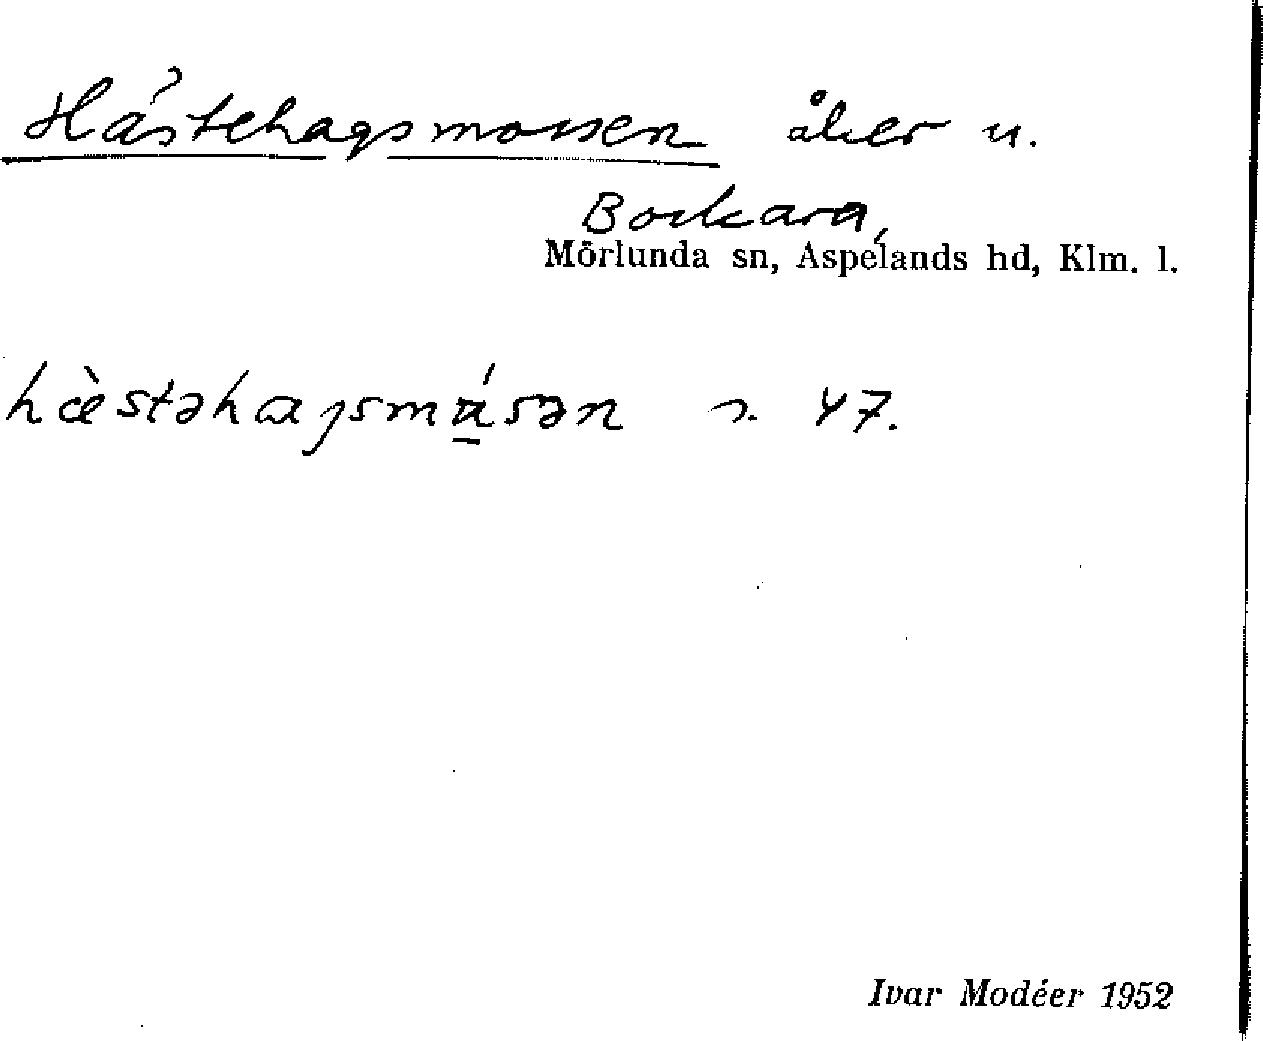 Hästehagsmossen åker u.
Bockara,
Mörlunda sn, Aspelands hd, Klm. l.
hæ̀stəhaɡsmɑ́sən s. 47.
Ivar Modéer 1952